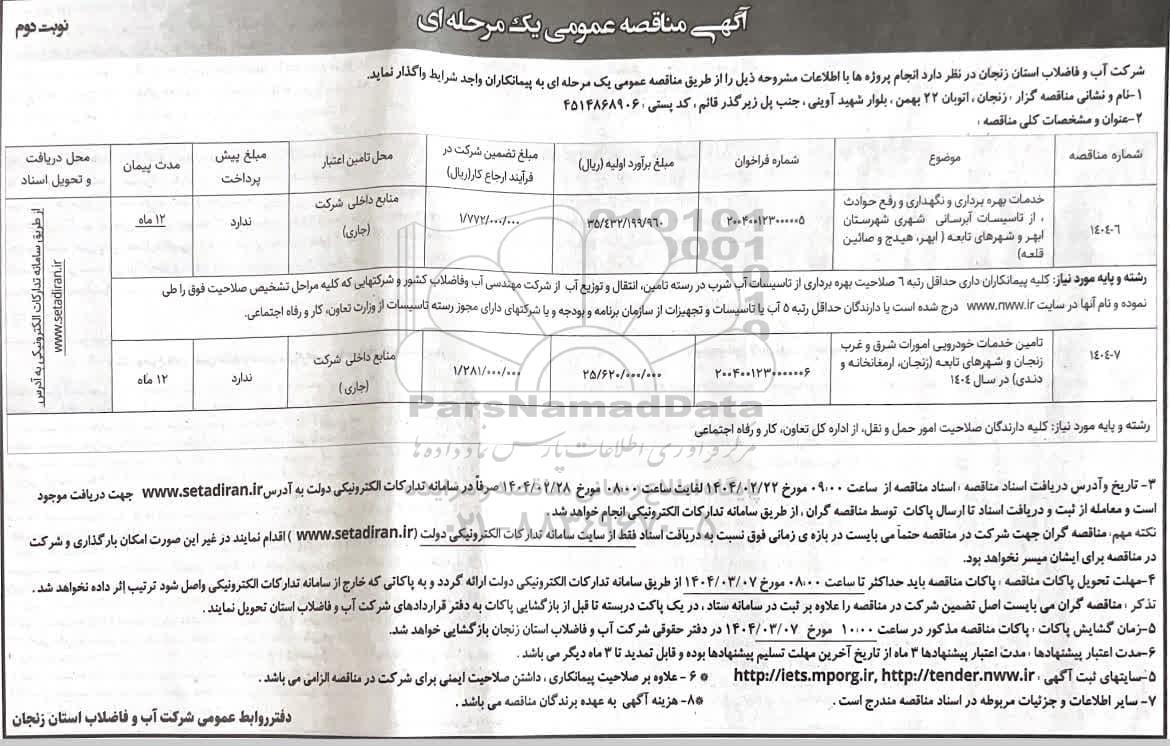 آگهی مناقصه عمومی یک مرحله ای
نوبت دوم
شرکت آب و فاضلاب استان زنجان در نظر دارد انجام پروژه ها با اطلاعات مشروحه ذیل را از طریق مناقصه عمومی یک مرحله ای به پیمانکاران واجد شرایط واگذار نماید.
۱-نام و نشانی مناقصه گزار : زنجان ، اتوبان ۲۲ بهمن ، بلوار شهید آوینی ، جنب پل زیرگذر قائم ، کد پستی : ۴۵۱۴۸۶۸۹۰۶
۲-عنوان و مشخصات کلی مناقصه :
شماره مناقصه
موضوع
شماره فراخوان
مبلغ برآورد اولیه (ریال)
مبلغ تضمین شرکت در
فرآیند ارجاع کار(ریال)
محل تامین اعتبار
مبلغ پیش
پرداخت
مدت پیمان
محل دریافت
و تحویل اسناد
۱۴۰۴-۶
خدمات بهره برداری و نگهداری و رفع حوادث
، از تاسیسات آبرسانی شهری شهرستان
ابهر و شهرهای تابعه ( ابهر، هیدج و صائین
قلعه)
۲۰۰۴۰۰۱۲۳۰۰۰۰۰۵
۳۵/۴۳۲/۱۹۹/۹۶۰
۱/۷۷۲/۰۰۰/۰۰۰
منابع داخلی شرکت
(جاری)
ندارد
۱۲ ماه
از طریق سامانه تدارکات الکترونیکی به آدرس
www.setadiran.ir
رشته و پایه مورد نیاز: کلیه پیمانکاران داری حداقل رتبه ۶ صلاحیت بهره برداری از تاسیسات آب شرب در رسته تامین، انتقال و توزیع آب از شرکت مهندسی آب وفاضلاب کشور و شرکتهایی که کلیه مراحل تشخیص صلاحیت فوق را طی
نموده و نام آنها در سایت www.nww.ir درج شده است یا دارندگان حداقل رتبه ۵ آب یا تاسیسات و تجهیزات از سازمان برنامه و بودجه و یا شرکتهای دارای مجوز رسته تاسیسات از وزارت تعاون، کار و رفاه اجتماعی.
۱۴۰۴-۷
تامین خدمات خودرویی امورات شرق و غرب
زنجان و شهرهای تابعه (زنجان، ارمغانخانه و
دندی) در سال ۱۴۰۴
۲۰۰۴۰۰۱۲۳۰۰۰۰۰۰۶
۲۵/۶۲۰/۰۰۰/۰۰۰
۱/۲۸۱/۰۰۰/۰۰۰
منابع داخلی شرکت
(جاری)
ندارد
۱۲ ماه
ParsNamadData
مرکز فرآوری اطلاعات پارس نماد داده ها
رشته و پایه مورد نیاز: کلیه دارندگان صلاحیت امور حمل و نقل، از اداره کل تعاون، کار و رفاه اجتماعی
۳- تاریخ وآدرس دریافت اسناد مناقصه : اسناد مناقصه از ساعت ۰۹:۰۰ مورخ ۱۴۰۴/۰۲/۲۲ لغایت ساعت ۰۸:۰۰ مورخ ۱۴۰۴/۰۲/۲۸ صرفاً در سامانه تدارکات الکترونیکی دولت به آدرس www.setadiran.ir جهت دریافت موجود
است و معامله از ثبت و دریافت اسناد تا ارسال پاکات توسط مناقصه گران ، از طریق سامانه تدارکات الکترونیکی انجام خواهد شد .
۰۲۱-۸۸۳۴۹۶۷۰-۵
نکته مهم: مناقصه گران جهت شرکت در مناقصه حتماً می بایست در بازه ی زمانی فوق نسبت به دریافت اسناد فقط از سایت سامانه تدارکات الکترونیکی دولت (www.setadiran.ir ) اقدام نمایند در غیر این صورت امکان بارگذاری و شرکت
در مناقصه برای ایشان میسر نخواهد بود.
۴-مهلت تحویل پاکات مناقصه : پاکات مناقصه باید حداکثر تا ساعت ۰۸:۰۰ مورخ ۱۴۰۴/۰۳/۰۷ از طریق سامانه تدارکات الکترونیکی دولت ارائه گردد و به پاکاتی که خارج از سامانه تدارکات الکترونیکی واصل شود ترتیب اثر داده نخواهد شد .
تذکر : مناقصه گران می بایست اصل تضمین شرکت در مناقصه را علاوه بر ثبت در سامانه ستاد ، در یک پاکت دربسته تا قبل از بازگشایی پاکات به دفتر قراردادهای شرکت آب و فاضلاب استان تحویل نمایند .
۵-زمان گشایش پاکات : پاکات مناقصه مذکور در ساعت ۱۰:۰۰ مورخ ۱۴۰۴/۰۳/۰۷ در دفتر حقوقی شرکت آب و فاضلاب استان زنجان بازگشایی خواهد شد.
۶-مدت اعتبار پیشنهادها : مدت اعتبار پیشنهادها ۳ ماه از تاریخ آخرین مهلت تسلیم پیشنهادها بوده و قابل تمدید تا ۳ ماه دیگر می باشد .
۵-سایتهای ثبت آگهی : http://iets.mporg.ir, http://tender.nww.ir
* ۶ - علاوه بر صلاحیت پیمانکاری ، داشتن صلاحیت ایمنی برای شرکت در مناقصه الزامی می باشد .
۷- سایر اطلاعات و جزئیات مربوطه در اسناد مناقصه مندرج است .
*۸- هزینه آگهی به عهده برندگان مناقصه می باشد .
دفترروابط عمومی شرکت آب و فاضلاب استان زنجان